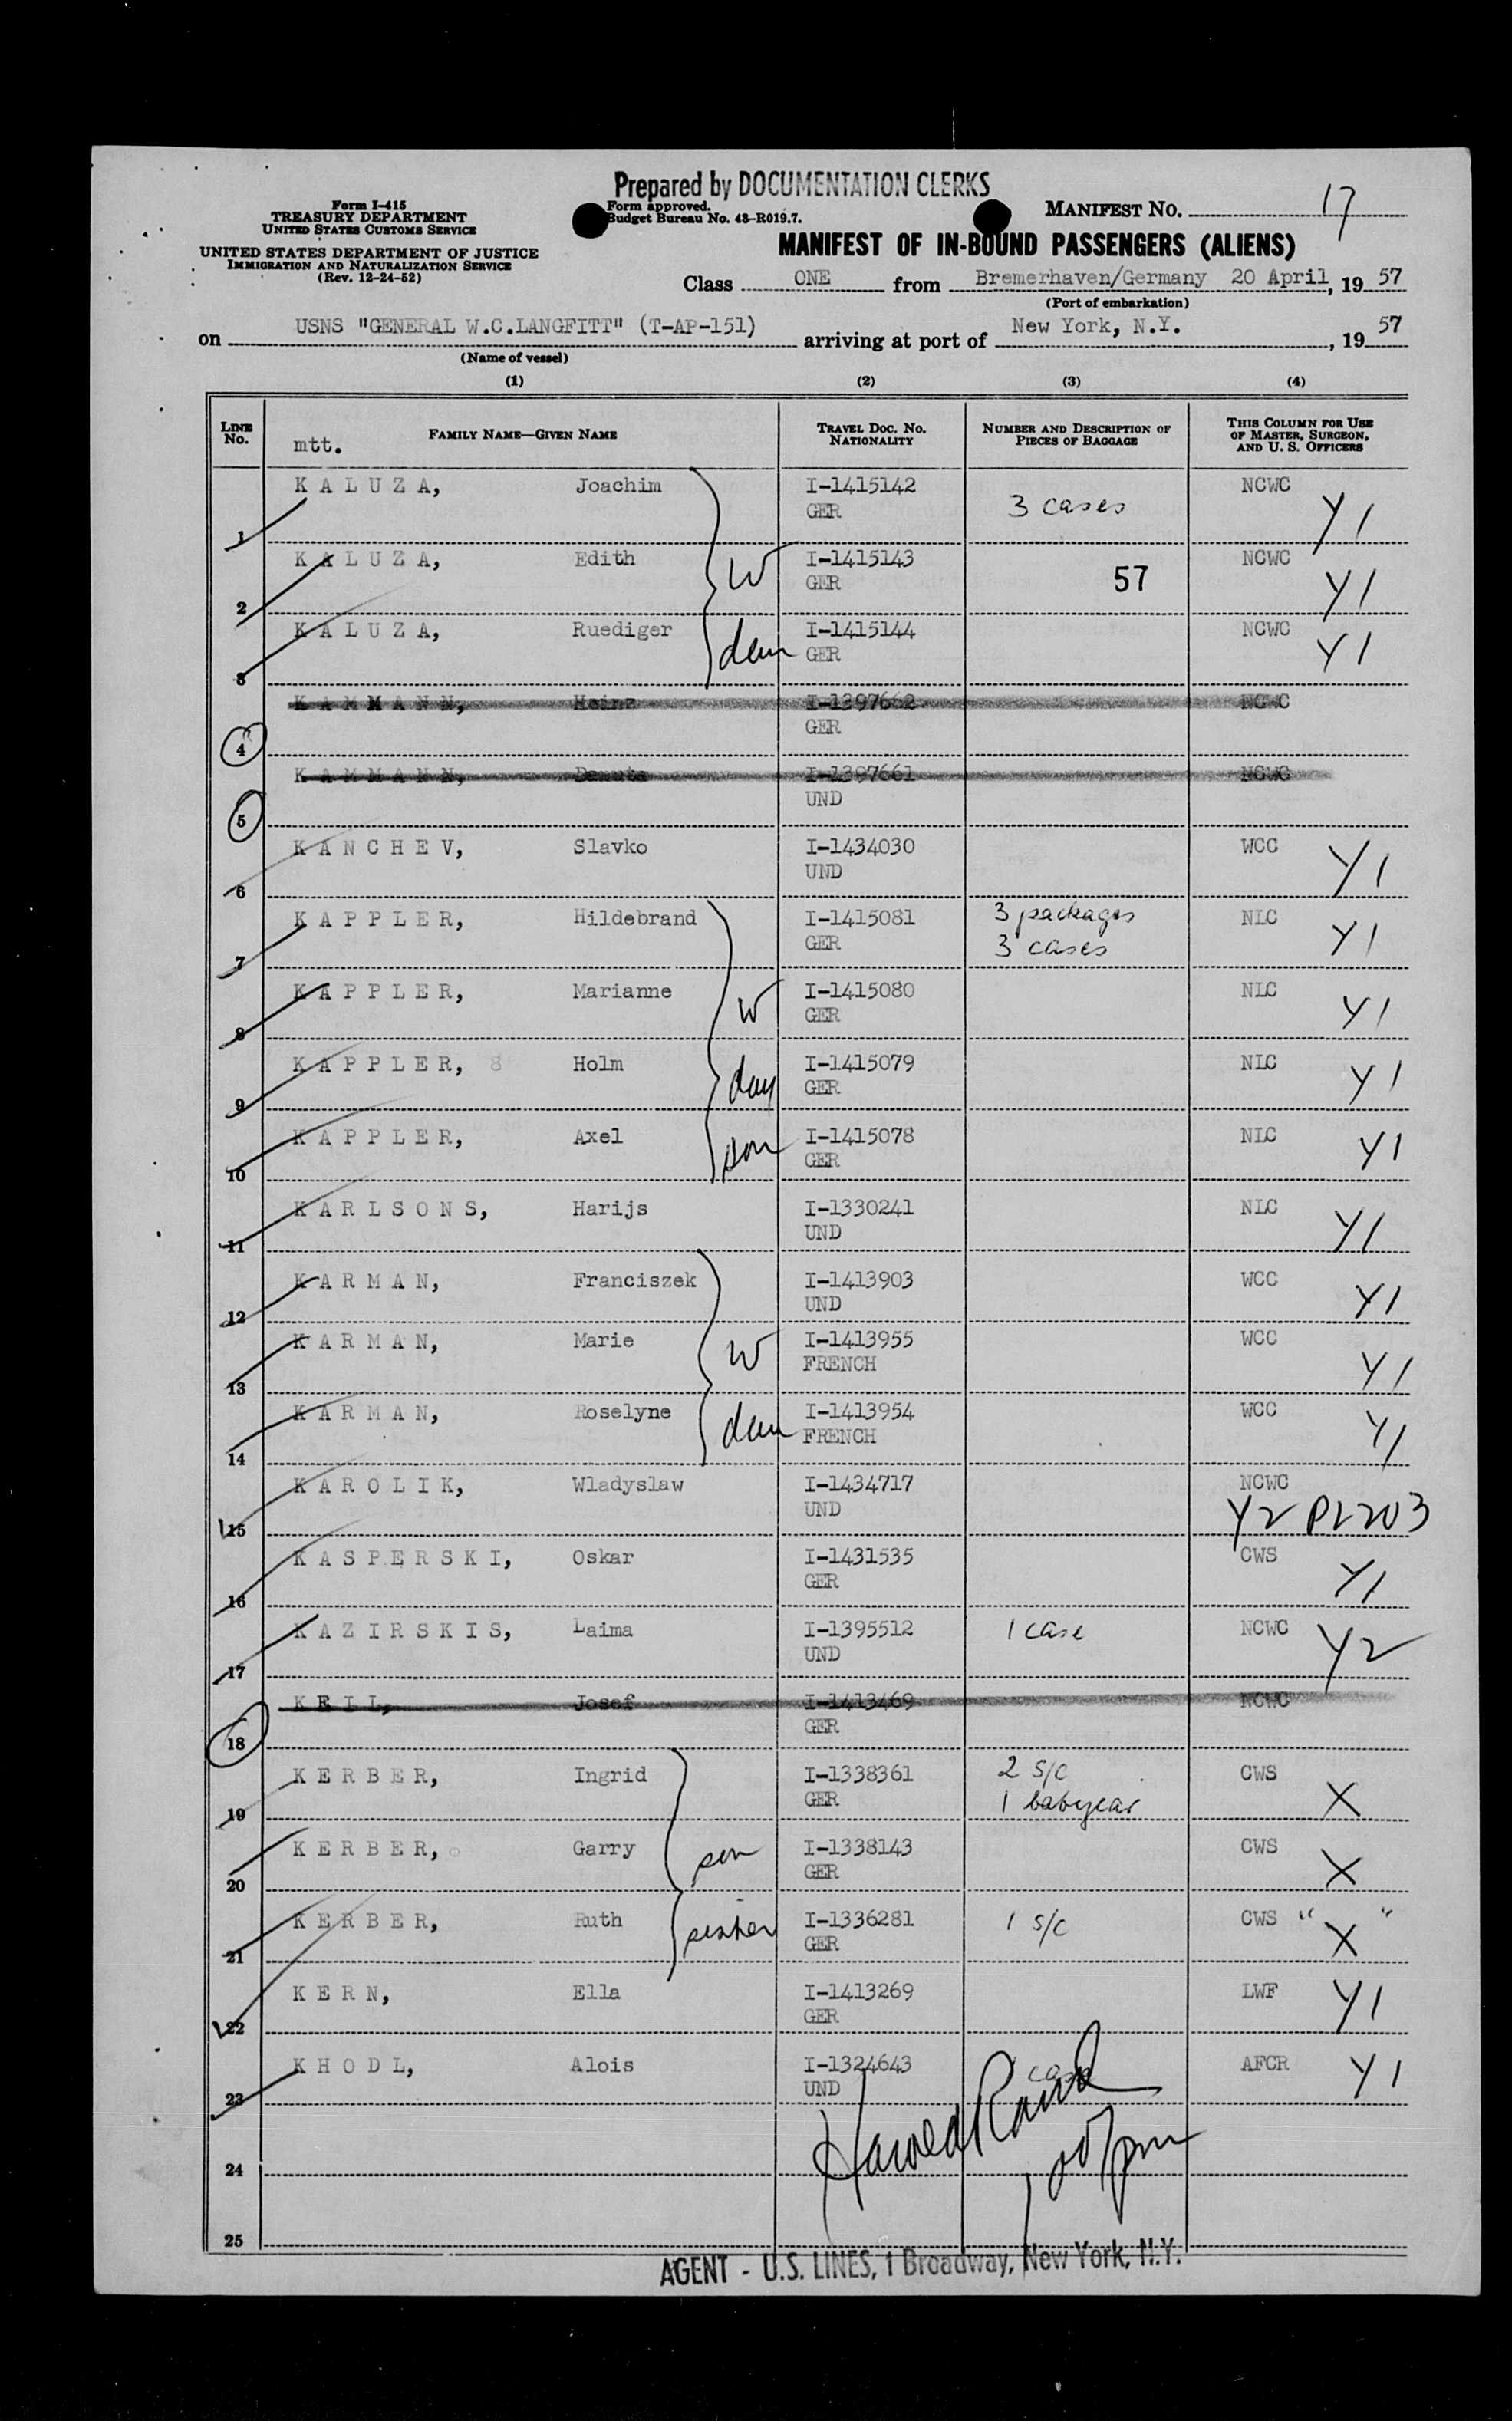 Prepared by DOCUMENTATION CLERKS
Form I-415
TREASURY DEPARTMENT
UNITED STATES CUSTOMS SERVICE
UNITED STATES DEPARTMENT OF JUSTICE
IMMIGRATION AND NATURALIZATION SERVICE
(Rev. 12-24-52)
Form approved.
Budget Bureau No. 43-R019.7.
MANIFEST NO. 17
MANIFEST OF IN-BOUND PASSENGERS (ALIENS)
Class ONE from Bremerhaven/Germany 20 April, 19 57
(Port of embarkation)
on USNS "GENERAL W.C.LANGFITT" (T-AP-151) arriving at port of New York, N.Y., 19 57
(Name of vessel)
(1) (2) (3) (4)
LINE NO. mtt. FAMILY NAME—GIVEN NAME TRAVEL DOC. NO. NATIONALITY NUMBER AND DESCRIPTION OF PIECES OF BAGGAGE THIS COLUMN FOR USE OF MASTER, SURGEON, AND U. S. OFFICERS
1 KALUZA, Joachim I-1415142 GER 3 cases NCWC Y1
2 KALUZA, Edith W I-1415143 GER 57 NCWC Y1
3 KALUZA, Ruediger I-1415144 GER NCWC Y1
4 KAMMANN, Heinz I-1397662 GER NCWC
5 KAMMANN, Danuta I-1397661 UND NCWC
6 KANCHEV, Slavko I-1434030 UND WCC Y1
7 KAPPLER, Hildebrand I-1415081 GER 3 packages 3 cases NLC Y1
8 KAPPLER, Marianne W I-1415080 GER NLC Y1
9 KAPPLER, 8 Holm I-1415079 GER NLC Y1
10 KAPPLER, Axel son I-1415078 GER NLC Y1
11 KARLSONS, Harijs I-1330241 UND NLC Y1
12 KARMAN, Franciszek I-1413903 UND WCC Y1
13 KARMAN, Marie W I-1413955 FRENCH WCC Y1
14 KARMAN, Roselyne I-1413954 FRENCH WCC Y1
15 KAROLIK, Wladyslaw I-1434717 UND NCWC Y2 PL203
16 KASPERSKI, Oskar I-1431535 GER CWS Y1
17 KAZIRSKIS, Laima I-1395512 UND 1 case NCWC Y2
18 KEIL, Josef I-1413469 GER NCWC
19 KERBER, Ingrid I-1338361 GER 2 S/C 1 babycar CWS X
20 KERBER, Garry son I-1338143 GER CWS X
21 KERBER, Ruth sister I-1336281 GER 1 S/C CWS " X "
22 KERN, Ella I-1413269 GER LWF Y1
23 KHODL, Alois I-1324643 UND AFCR Y1
24
25
AGENT - U.S. LINES, 1 Broadway, New York, N.Y.